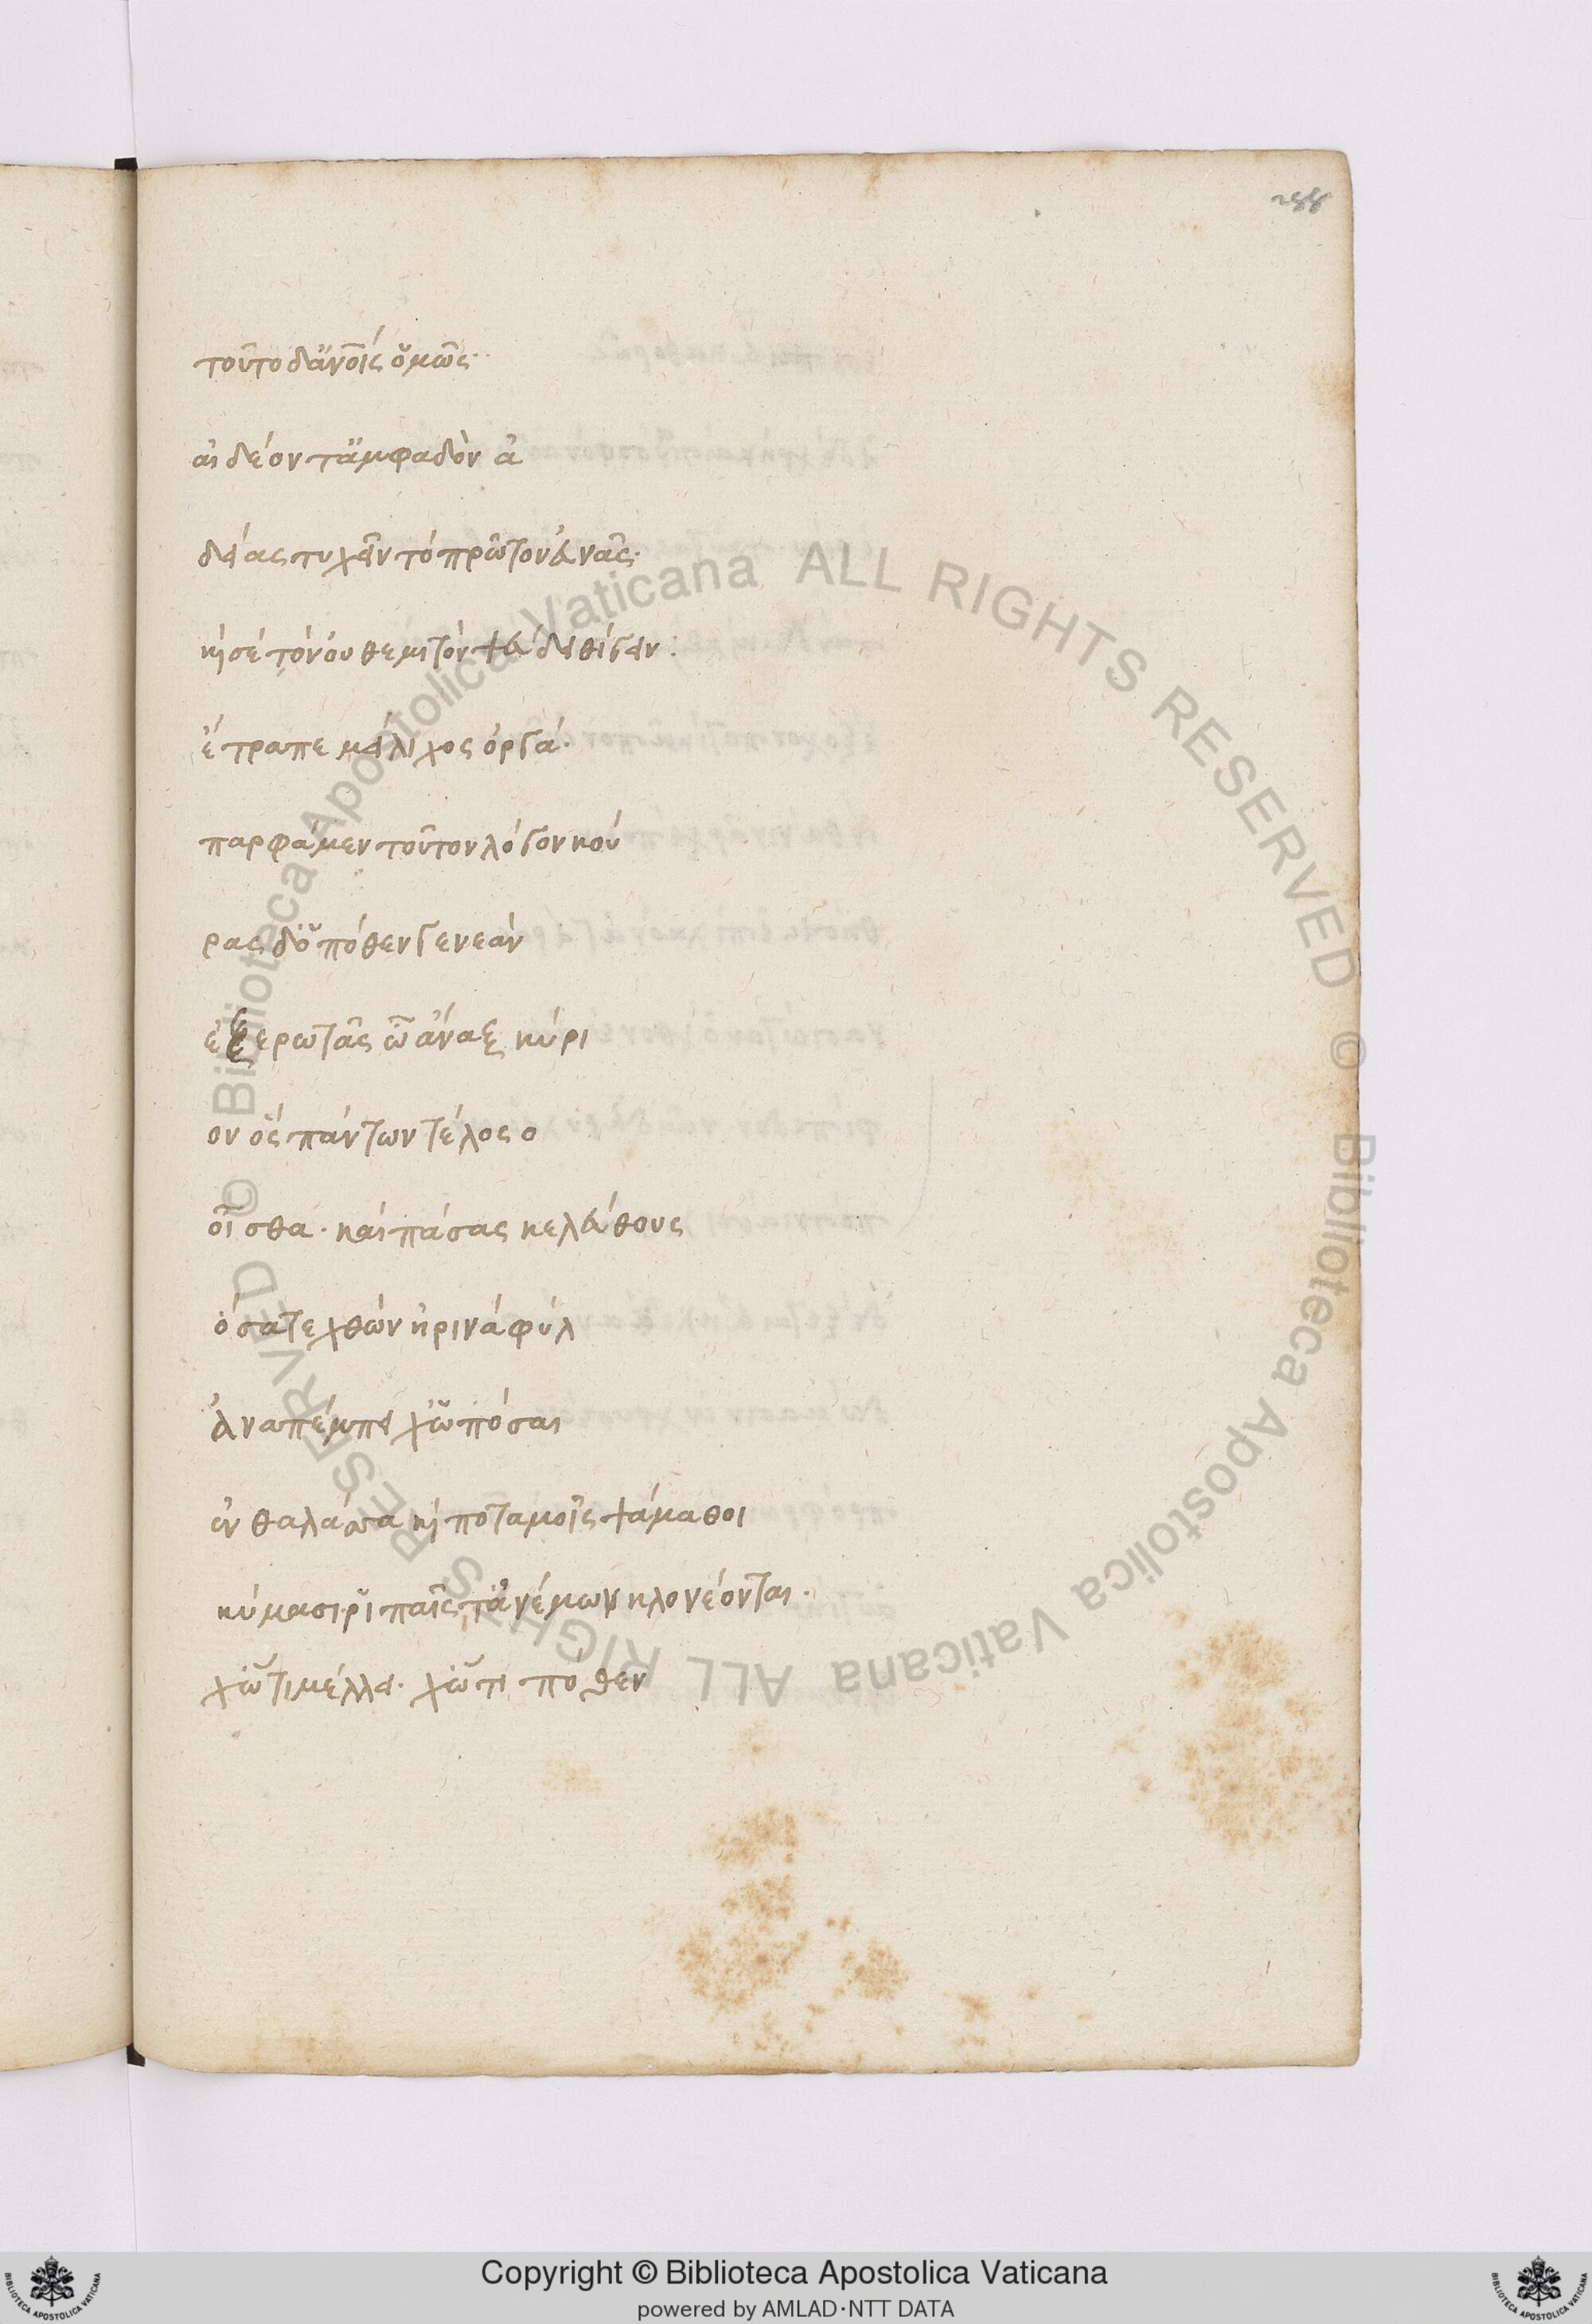 288
τοῦτο δ' ἀνοῖς ὅμως·
αἰδέοντ' ἀμφαδὸν ἁ
δείας τυχεῖν τὸ πρῶτον εὐνᾶς·
καὶ σὲ τὸν οὐ θεμιτὸν ψεύδει θίγειν:
ἔτραπε μείλιχος ὀργά·
παρφάμεν τοῦτον λόγον κού
ρας δ' ὁπόθεν γενεὰν
ἐξερωτᾶς ὦ ἄνα ξ κύρι
ον ὃς πάντων τέλος ο
οἶσθα· καὶ πάσας κελεύθους
ὅσα τε χθὼν ἠρινὰ φύλ
ἀναπέμπει χὠπόσαι
ἐν θαλάσσα καὶ ποταμοῖς ψάμαθοι
κύμασι ῥιπαῖς τ' ἀνέμων κλονέονται·
χὤτι μέλλει· χὤτι πόθεν
© Biblioteca Apostolica Vaticana ALL RIGHTS RESERVED © Biblioteca Apostolica Vaticana ALL RIGHTS RESERVED
Copyright © Biblioteca Apostolica Vaticana
powered by AMLAD·NTT DATA
BIBLIOTECA APOSTOLICA VATICANA
BIBLIOTECA APOSTOLICA VATICANA